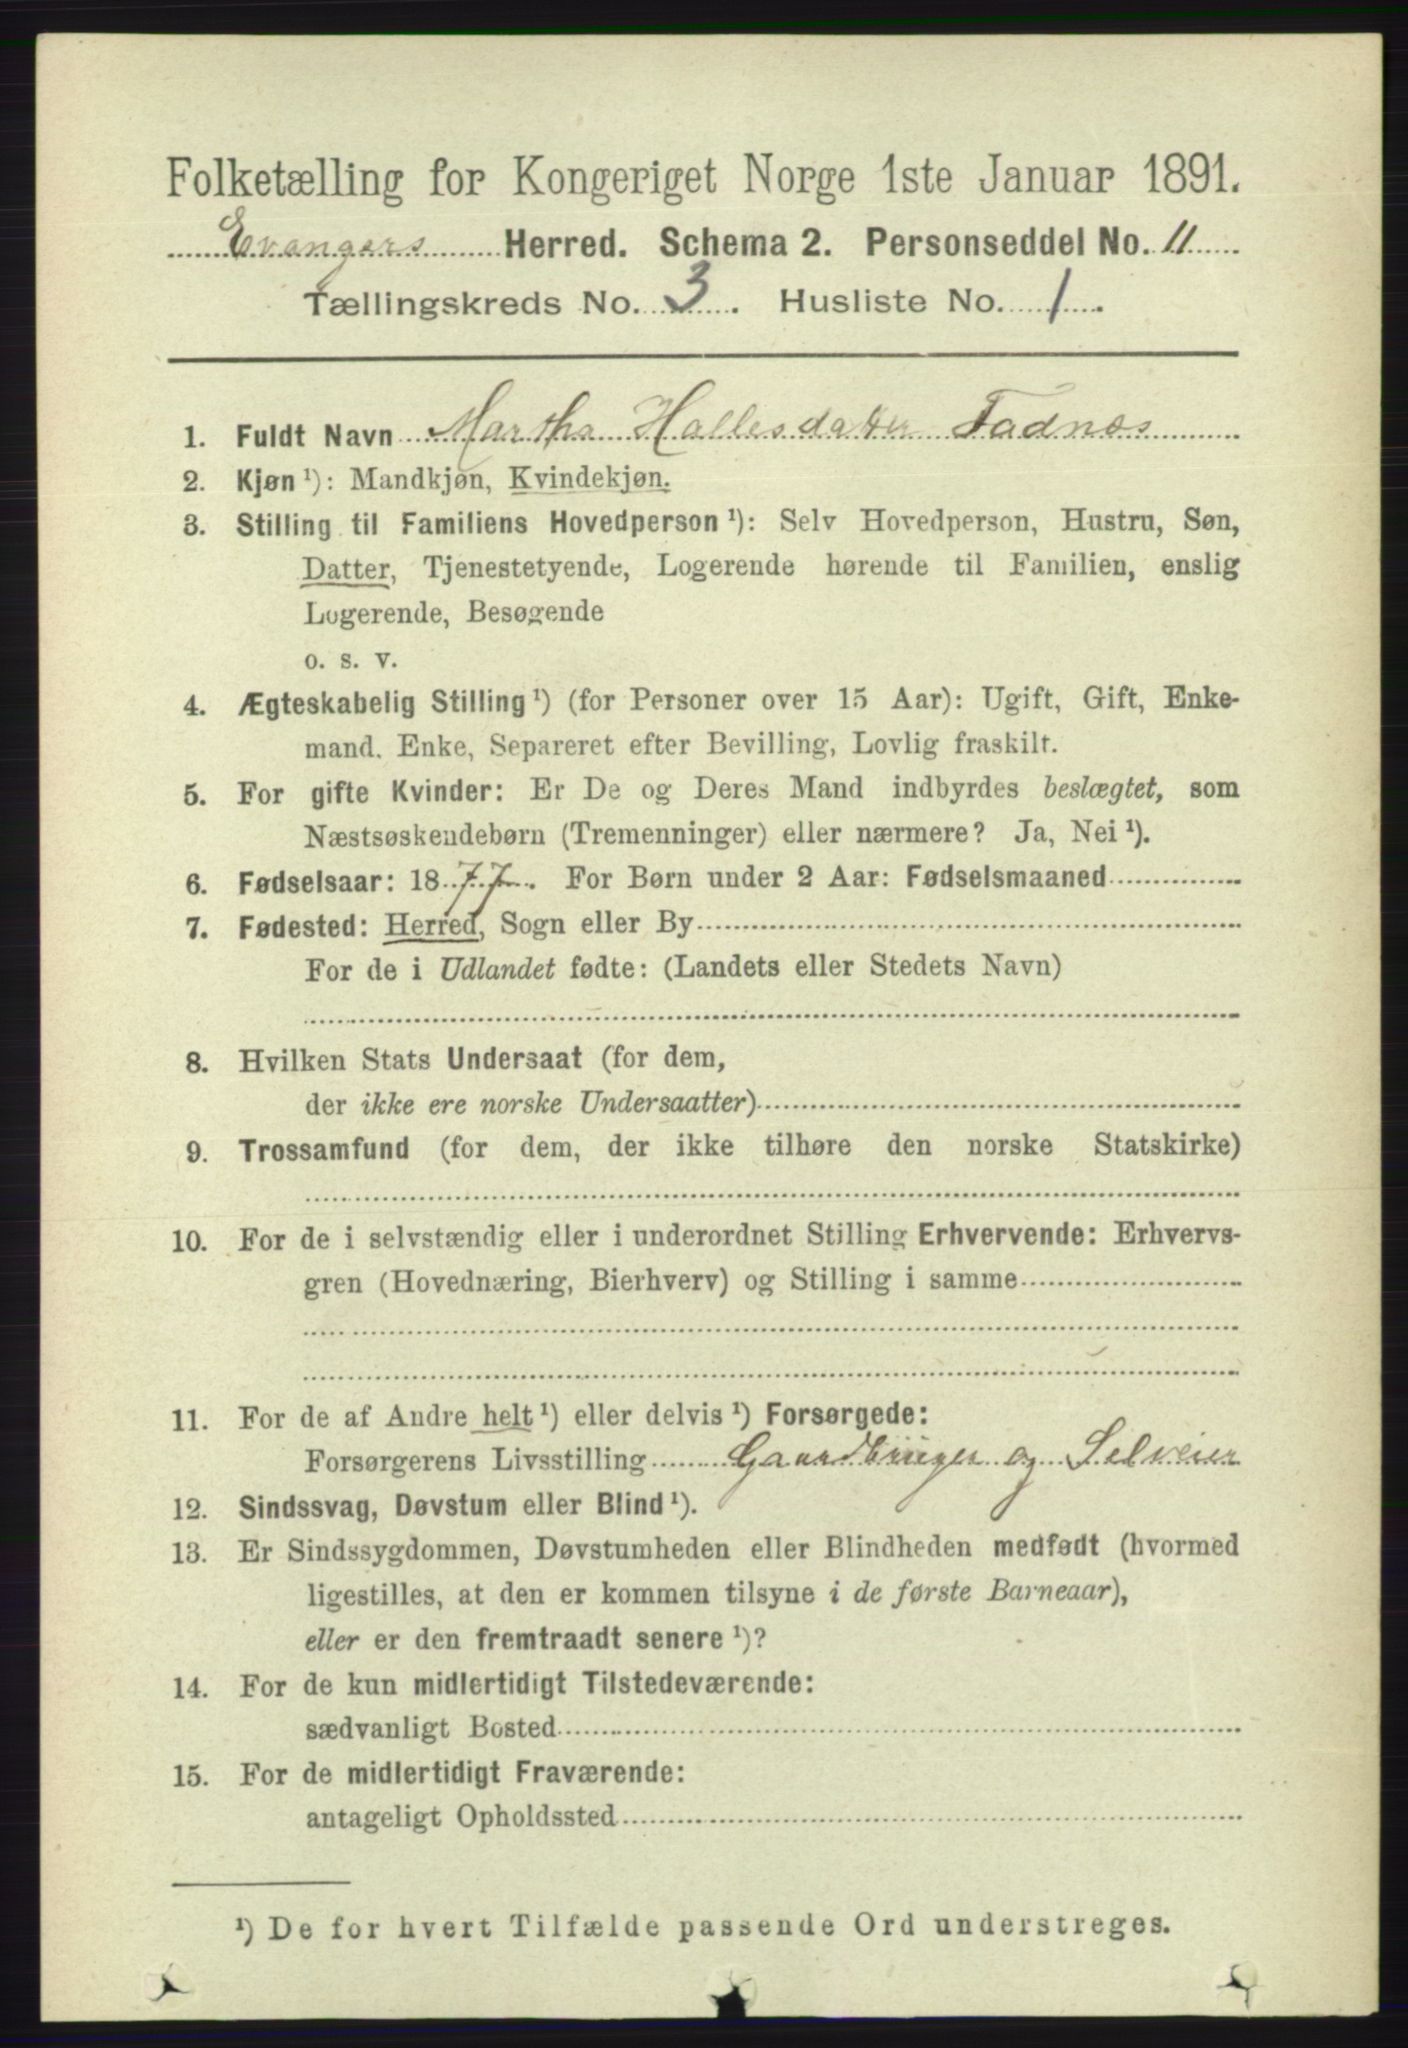 Folketælling for Kongeriget Norge 1ste Januar 1891.
Evangers Herred. Schema 2. Personseddel No. 11
Tællingskreds No. 3. Husliste No. 1.
1. Fuldt Navn Martha Hallesdatter Fadnæs
2. Kjøn ¹): Mandkjøn, Kvindekjøn.
3. Stilling til Familiens Hovedperson ¹): Selv Hovedperson, Hustru, Søn,
Datter, Tjenestetyende, Logerende hørende til Familien, enslig
Logerende, Besøgende
o. s. v.
4. Ægteskabelig Stilling ¹) (for Personer over 15 Aar): Ugift, Gift, Enke-
mand. Enke, Separeret efter Bevilling, Lovlig fraskilt.
5. For gifte Kvinder: Er De og Deres Mand indbyrdes beslægtet, som
Næstsøskendebørn (Tremenninger) eller nærmere? Ja, Nei ¹).
6. Fødselsaar: 1877. For Børn under 2 Aar: Fødselsmaaned
7. Fødested: Herred, Sogn eller By
For de i Udlandet fødte: (Landets eller Stedets Navn)
8. Hvilken Stats Undersaat (for dem,
der ikke ere norske Undersaatter)
9. Trossamfund (for dem, der ikke tilhøre den norske Statskirke)
10. For de i selvstændig eller i underordnet Stilling Erhvervende: Erhvervs-
gren (Hovednæring, Bierhverv) og Stilling i samme
11. For de af Andre helt ¹) eller delvis ¹) Forsørgede:
Forsørgerens Livsstilling Gaardbruger og Selveier
12. Sindssvag, Døvstum eller Blind ¹).
13. Er Sindssygdommen, Døvstumheden eller Blindheden medfødt (hvormed
ligestilles, at den er kommen tilsyne i de første Barneaar),
eller er den fremtraadt senere ¹)?
14. For de kun midlertidigt Tilstedeværende:
sædvanligt Bosted
15. For de midlertidigt Fraværende:
antageligt Opholdssted
¹) De for hvert Tilfælde passende Ord understreges.